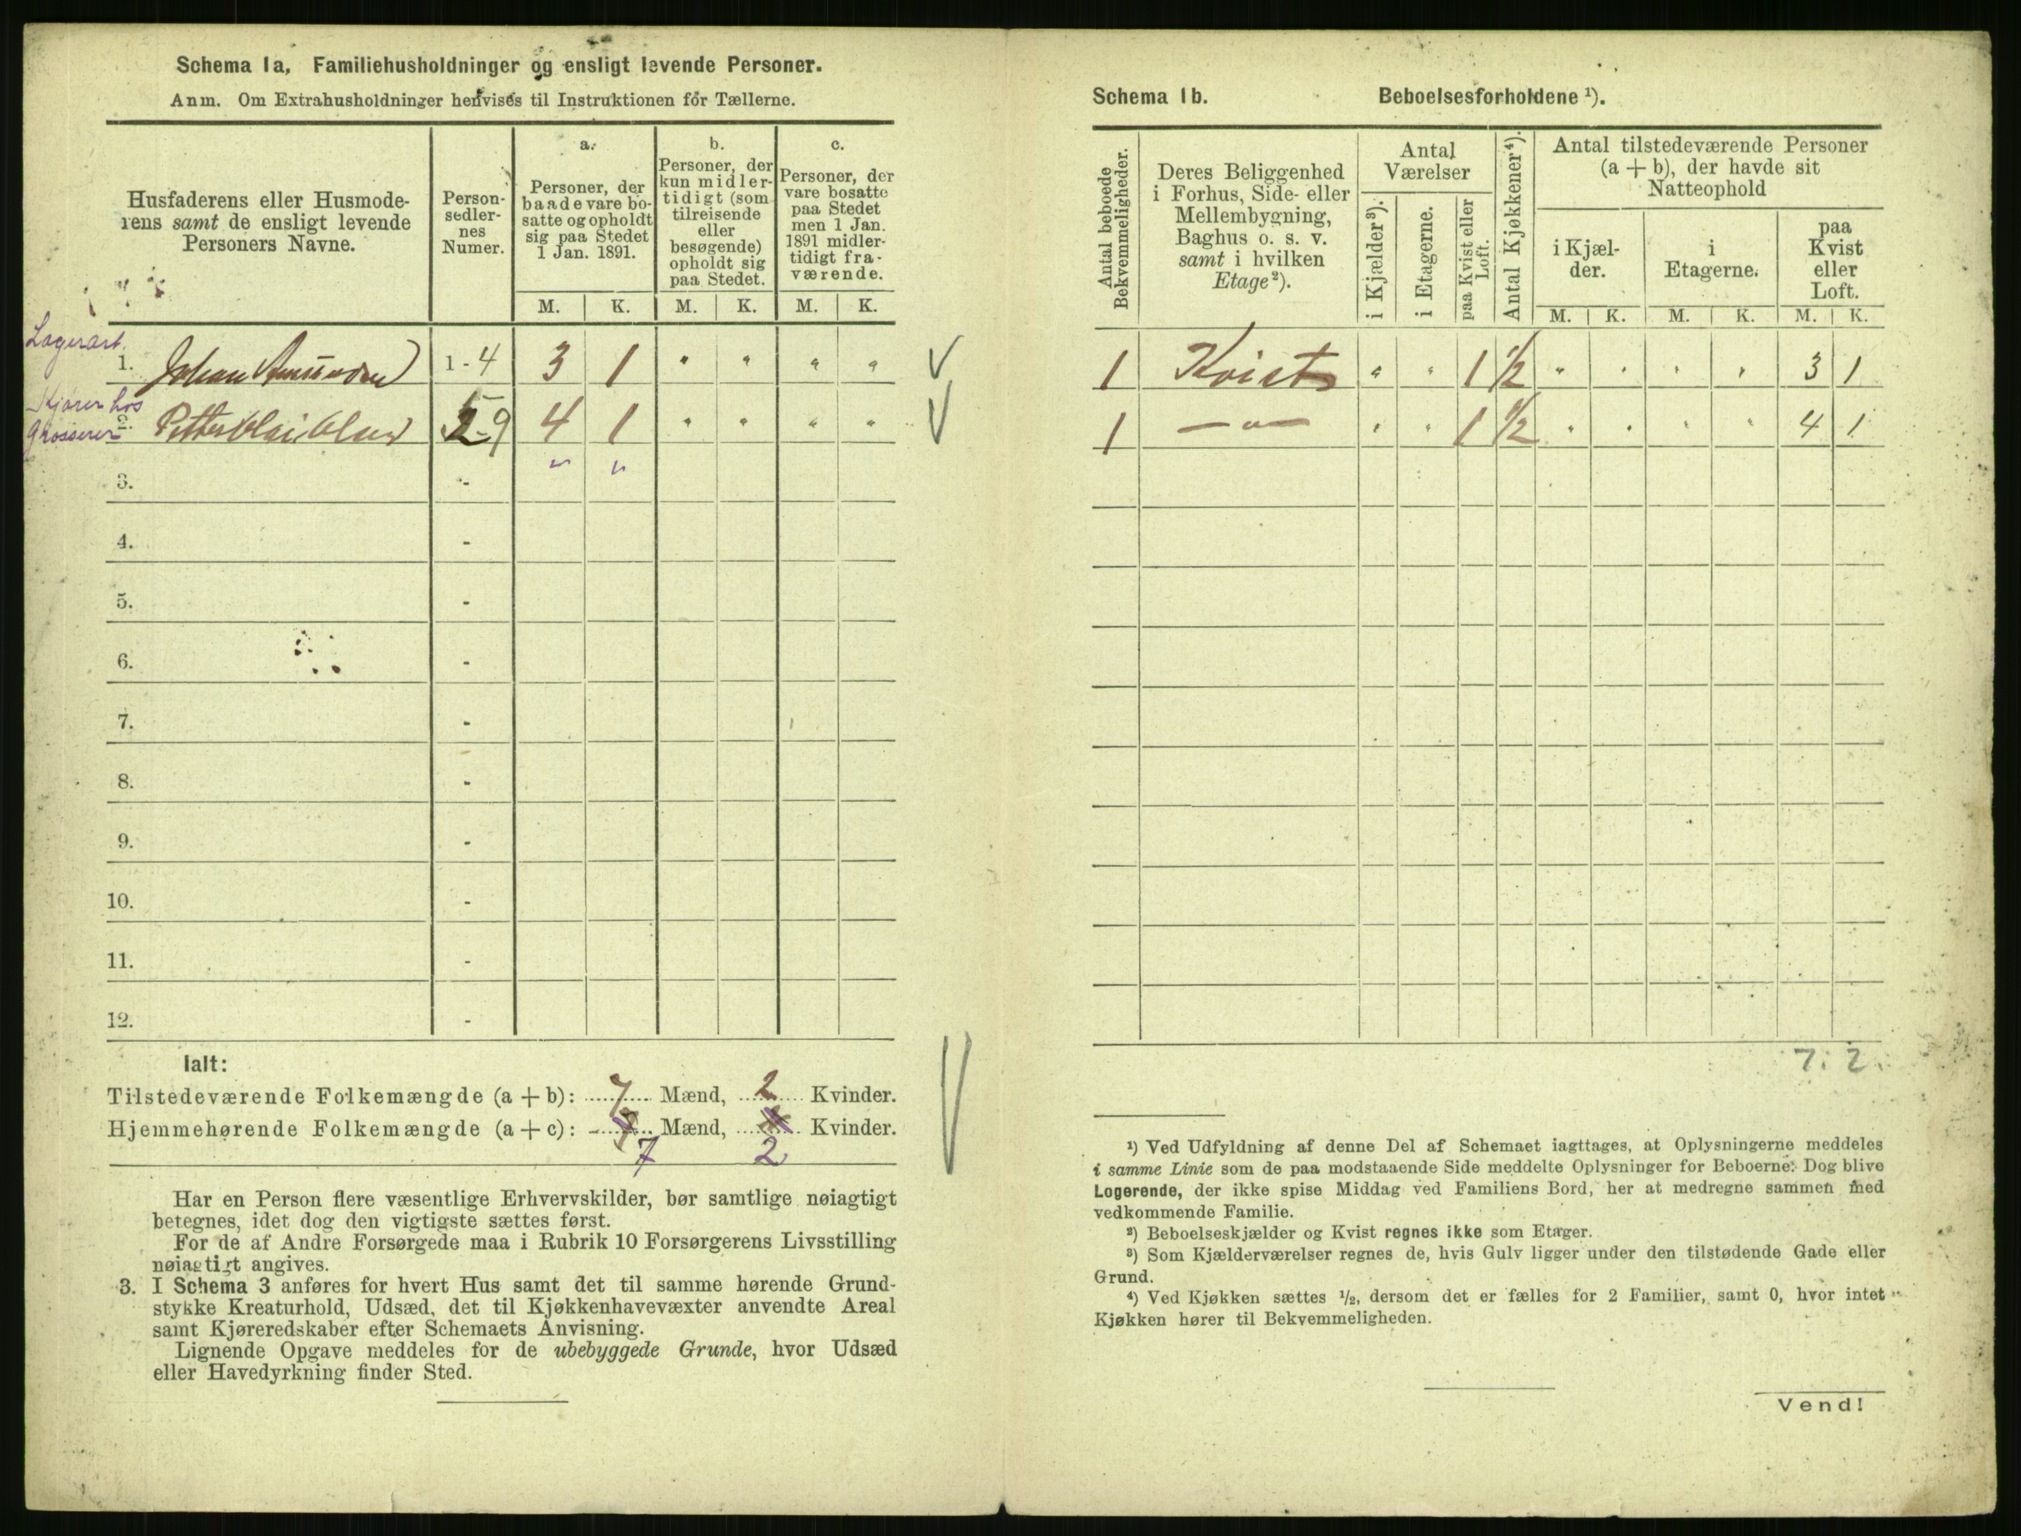 Schema 1a, Familiehusholdninger og ensligt levende Personer.
Anm. Om Extrahusholdninger henvises til Instruktionen for Tællerne.
Husfaderens eller Husmode-
rens samt de ensligt levende
Personers Navne.
Person-
sedler-
nes
Numer.
a.
Personer, der
baade vare bo-
satte og opholdt
sig paa Stedet
1 Jan. 1891.
b.
Personer, der
kun midler-
tidigt (som
tilreisende
eller
besøgende)
opholdt sig
paa Stedet.
c.
Personer, der
vare bosatte
paa Stedet
men 1 Jan.
1891 midler-
tidigt fra-
værende.
M. K. M. K. M. K.
Lagerarb.
1. Johan Amundsen 1 - 4 3 1 " " " "
Kjører hos
Grosserer
2. Petter 9 4 1 " " " "
3. - " "
4. -
5. -
6. -
7. -
8. -
9. -
10. -
11. -
12. -
Ialt:
Tilstedeværende Folkemængde (a + b): 7 Mænd, 2 Kvinder.
Hjemmehørende Folkemængde (a + c): Mænd, Kvinder.
7 2
Har en Person flere væsentlige Erhvervskilder, bør samtlige nøiagtigt
betegnes, idet dog den vigtigste sættes først.
For de af Andre Forsørgede maa i Rubrik 10 Forsørgerens Livsstilling
nøiagtigt angives.
3. I Schema 3 anføres for hvert Hus samt det til samme hørende Grund-
stykke Kreaturhold, Udsæd, det til Kjøkkenhavevæxter anvendte Areal
samt Kjøreredskaber efter Schemaets Anvisning.
Lignende Opgave meddeles for de ubebyggede Grunde, hvor Udsæd
eller Havedyrkning finder Sted.
Schema 1b. Beboelsesforholdene ¹).
Antal beboede
Bekvemmeligheder.
Deres Beliggenhed
i Forhus, Side- eller
Mellembygning,
Baghus o. s. v.
samt i hvilken
Etage²).
Antal
Værelser
i Kjælder³).
i Etagerne.
paa Kvist eller
Loft.
Antal Kjøkkener⁴).
Antal tilstedeværende Personer
(a + b), der havde sit
Natteophold
i Kjæl-
der.
i
Etagerne.
paa
Kvist
eller
Loft.
M. K. M. K. M. K.
1 Kvist " " 1 1/2 " " " " 3 1
1 — " — " " 1 1/2 " " " " 4 1
7. 2.
¹) Ved Udfyldning af denne Del af Schemaet iagttages, at Oplysningerne meddeles
i samme Linie som de paa modstaaende Side meddelte Oplysninger for Beboerne. Dog blive
Logerende, der ikke spise Middag ved Familiens Bord, her at medregne sammen med
vedkommende Familie.
²) Beboelseskjælder og Kvist regnes ikke som Etager.
³) Som Kjælderværelser regnes de, hvis Gulv ligger under den tilstødende Gade eller
Grund.
⁴) Ved Kjøkken sættes ¹/₂, dersom det er fælles for 2 Familier, samt 0, hvor intet
Kjøkken hører til Bekvemmeligheden.
Vend!